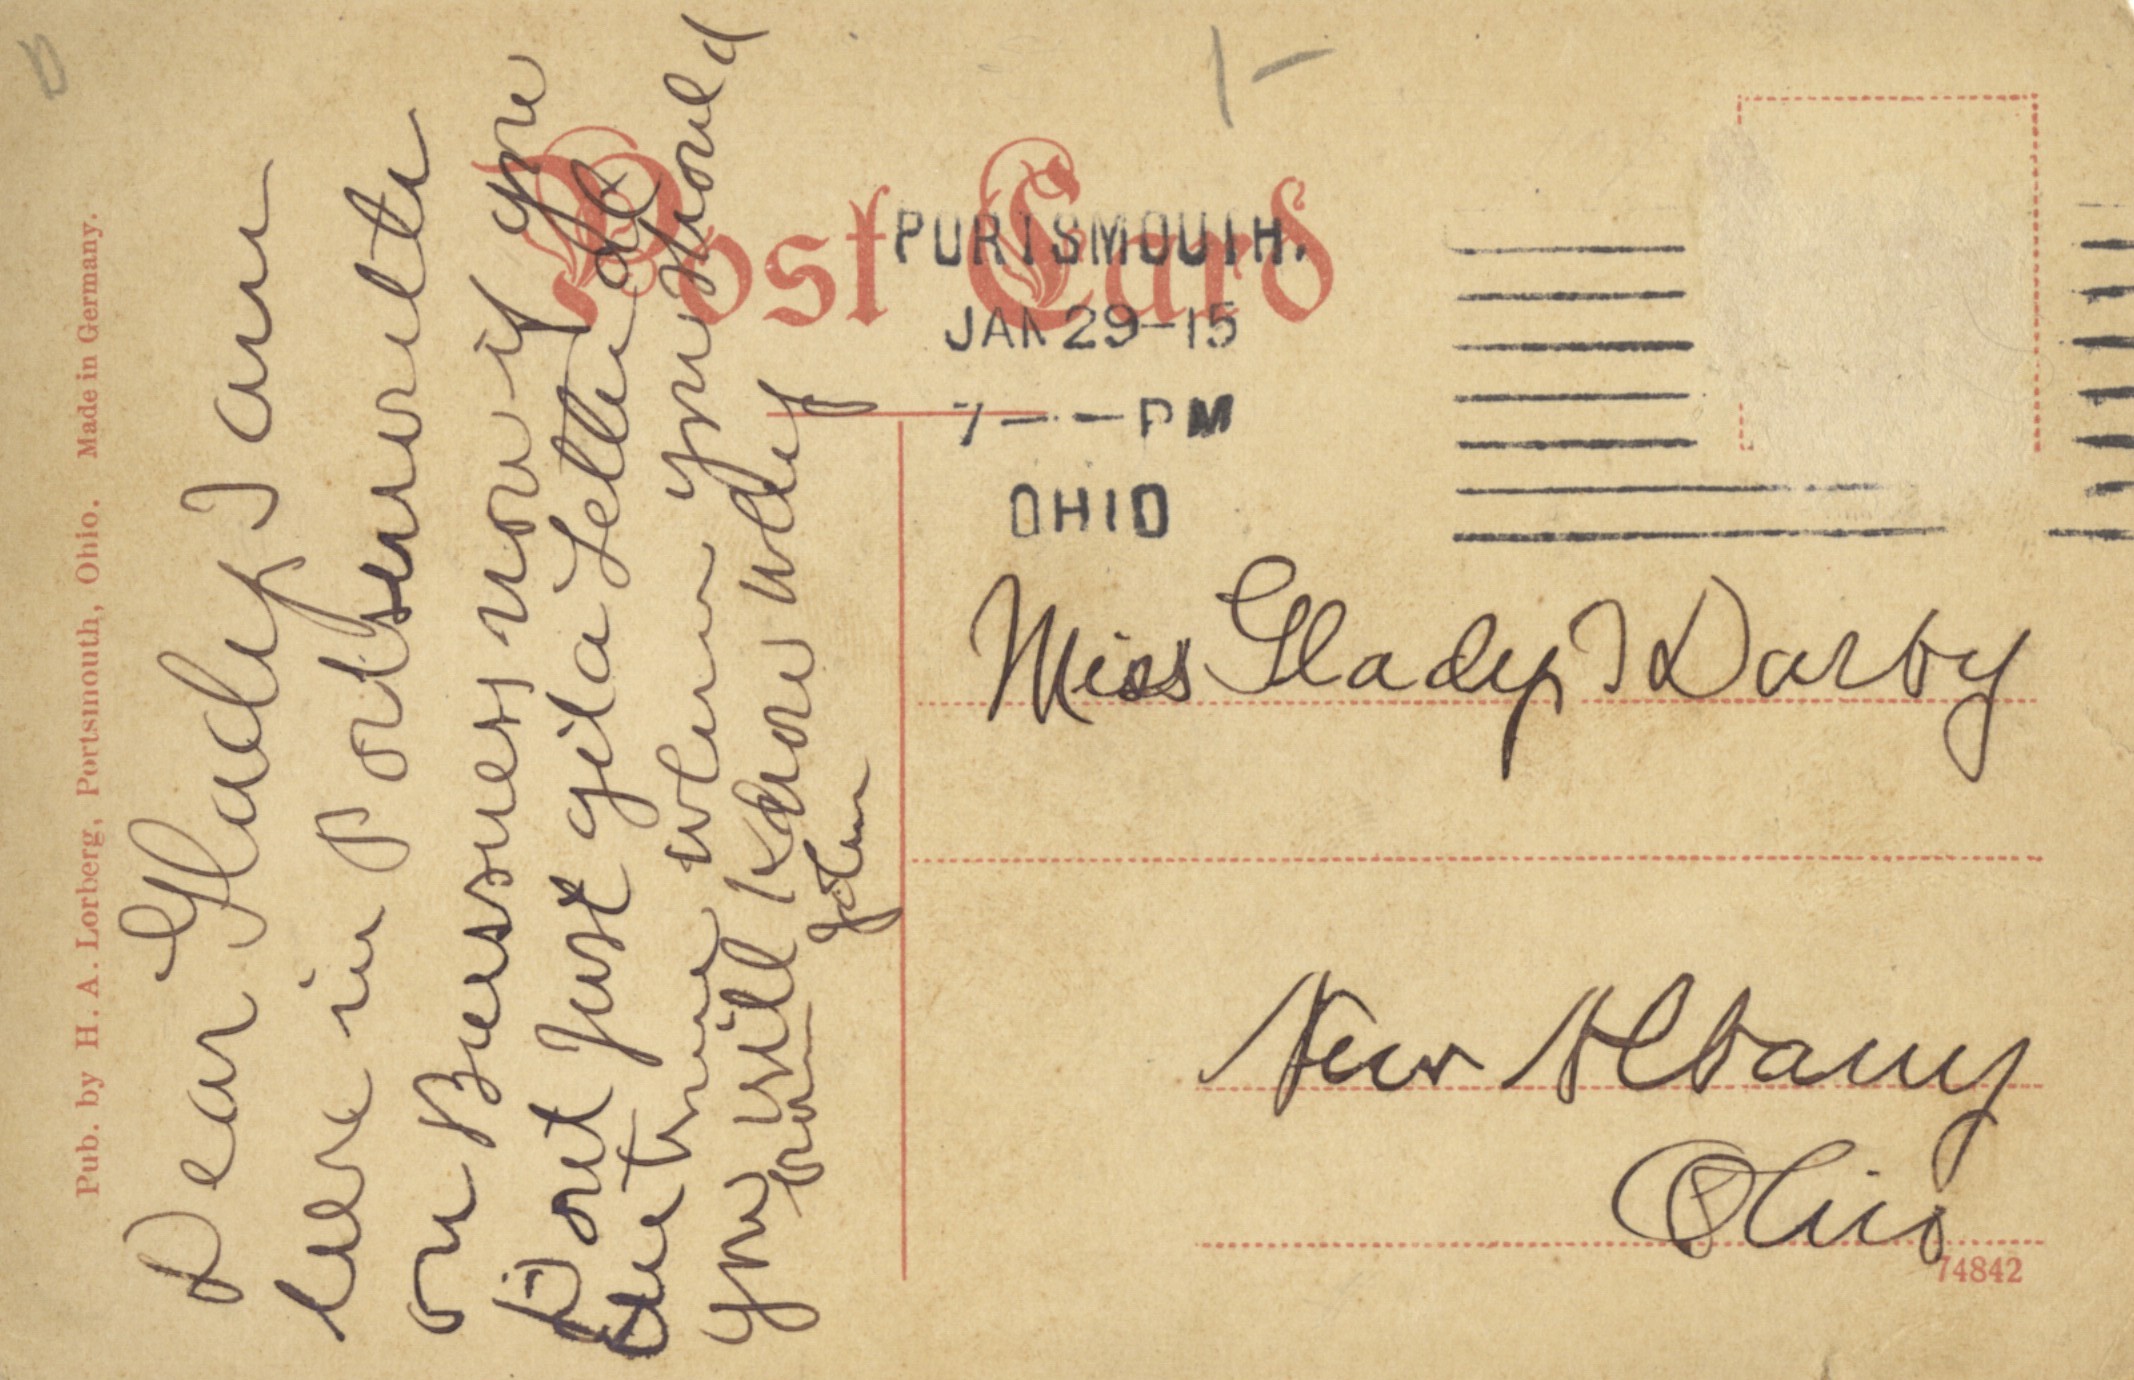 Pub. by H. A. Lorberg, Portsmouth, Ohio. Made in Germany.
Post Card
PORTSMOUTH.
JAN 29-15
7 - - PM
OHIO
Dear Gladys I am
here in Portsmouth
on Bussness now if you
Dont Just git a Letter all
time when you should
you will Know whey
from
John
Miss Gladys Darby
New Albany
Ohio
74842
1-